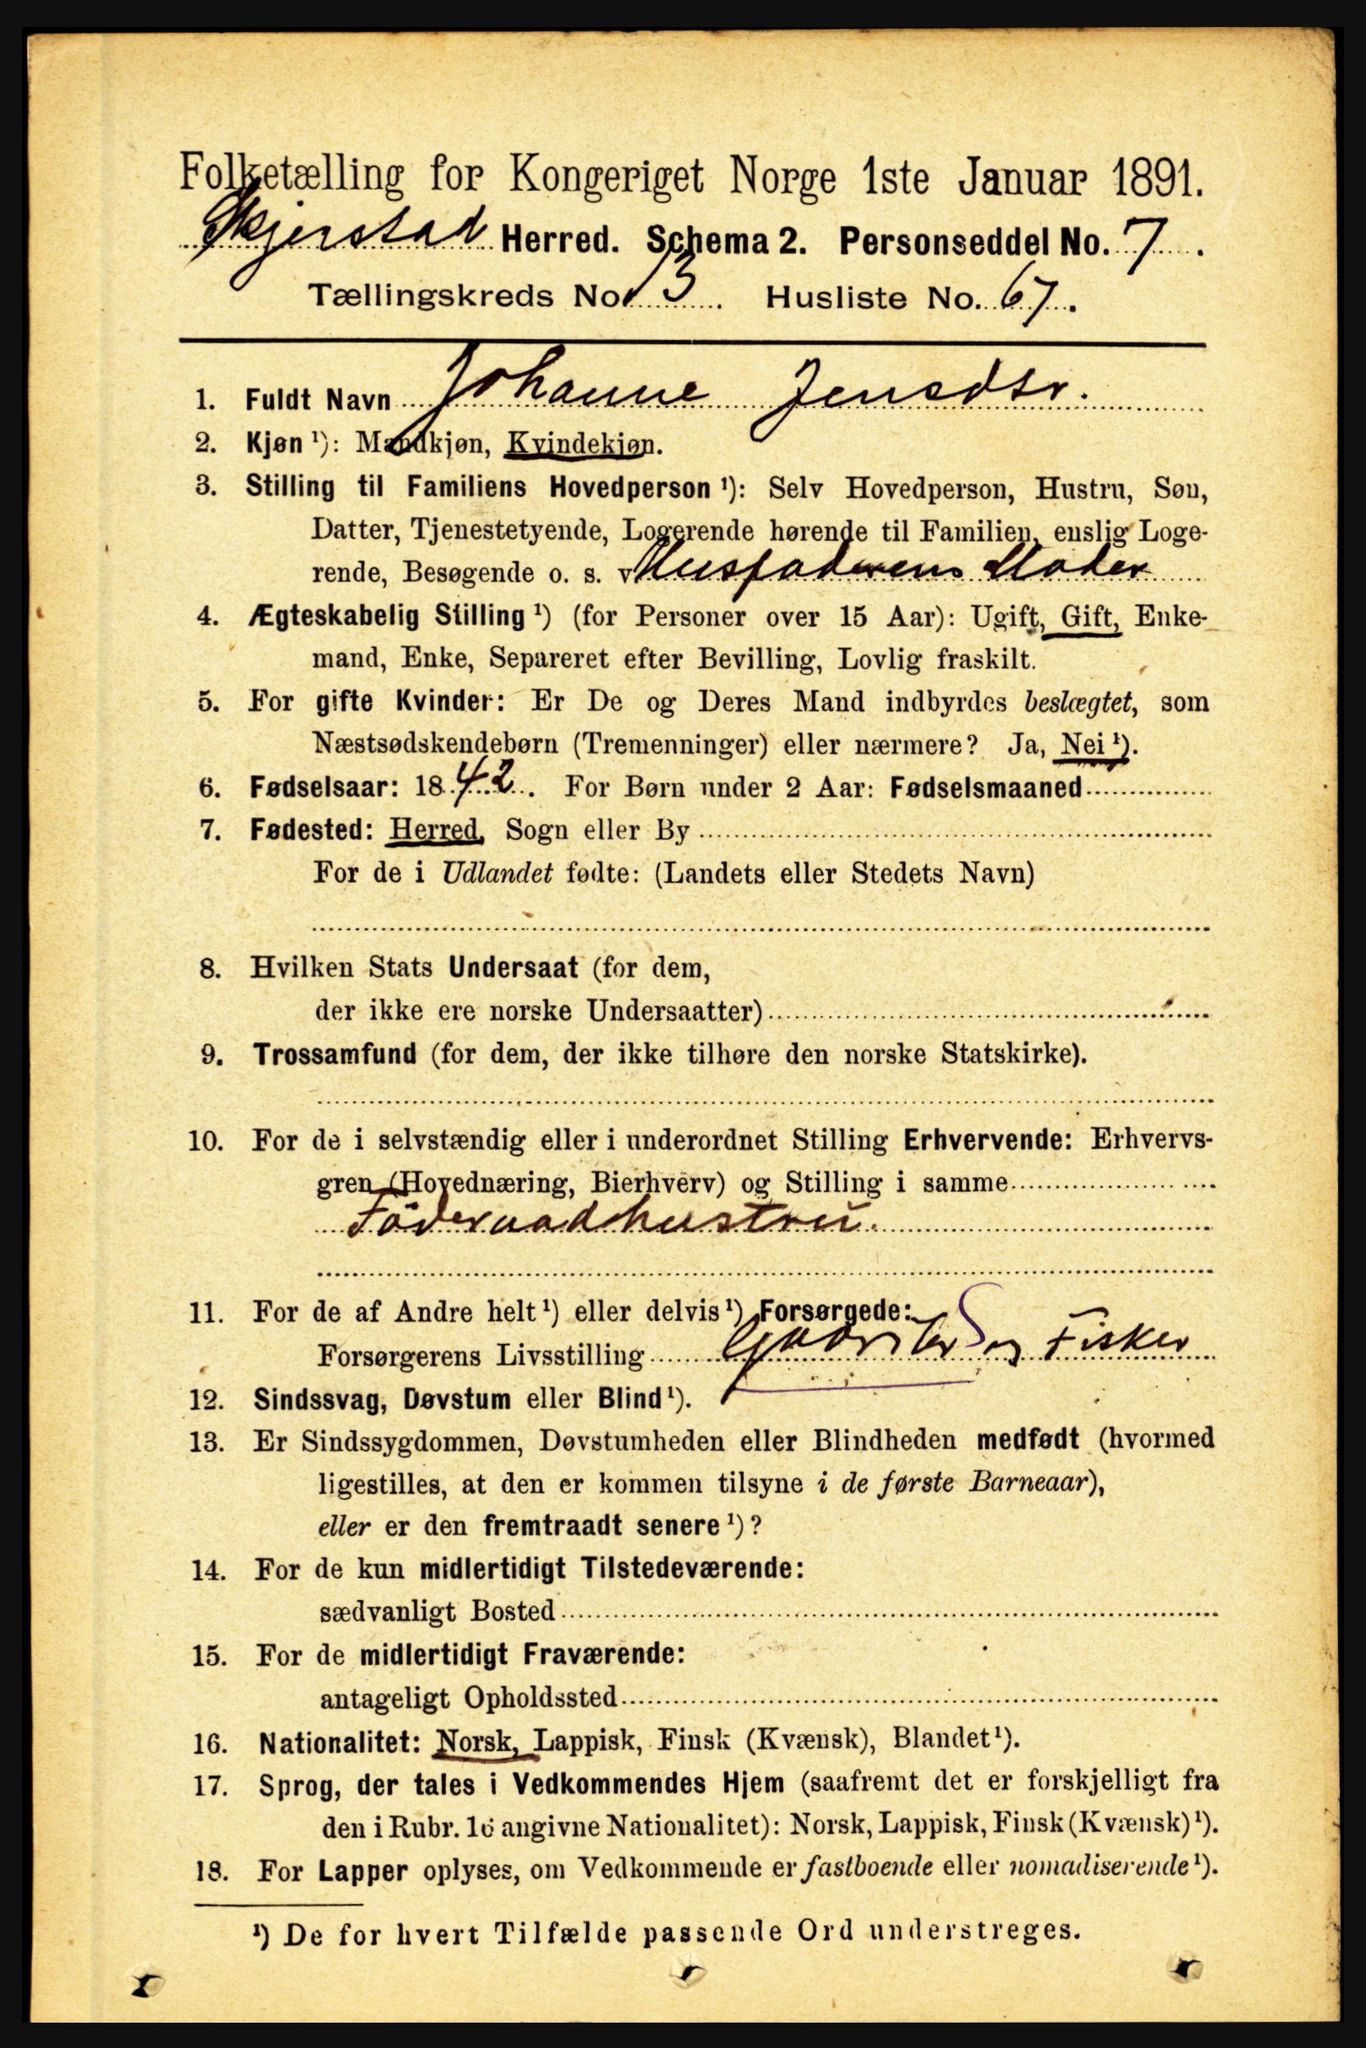 Folketælling for Kongeriget Norge 1ste Januar 1891.
Skjerstad Herred. Schema 2. Personseddel No. 7.
Tællingskreds No. 13. Husliste No. 67.
1. Fuldt Navn Johanne Jensdtr.
2. Kjøn ¹): Mandkjøn, Kvindekjøn.
3. Stilling til Familiens Hovedperson ¹): Selv Hovedperson, Hustru, Søn,
Datter, Tjenestetyende, Logerende hørende til Familien, enslig Loge-
rende, Besøgende o. s. v. Husfaderens Moder
4. Ægteskabelig Stilling ¹) (for Personer over 15 Aar): Ugift, Gift, Enke-
mand, Enke, Separeret efter Bevilling, Lovlig fraskilt.
5. For gifte Kvinder: Er De og Deres Mand indbyrdes beslægtet, som
Næstsødskendebørn (Tremenninger) eller nærmere? Ja, Nei ¹).
6. Fødselsaar: 1842. For Børn under 2 Aar: Fødselsmaaned
7. Fødested: Herred, Sogn eller By
For de i Udlandet fødte: (Landets eller Stedets Navn)
8. Hvilken Stats Undersaat (for dem,
der ikke ere norske Undersaatter)
9. Trossamfund (for dem, der ikke tilhøre den norske Statskirke).
10. For de i selvstændig eller i underordnet Stilling Erhvervende: Erhvervs-
gren (Hovednæring, Bierhverv) og Stilling i samme
Föderaadhustru.
11. For de af Andre helt ¹) eller delvis ¹) Forsørgede:
Forsørgerens Livsstilling og Fisker
12. Sindssvag, Døvstum eller Blind ¹).
13. Er Sindssygdommen, Døvstumheden eller Blindheden medfødt (hvormed
ligestilles, at den er kommen tilsyne i de første Barneaar),
eller er den fremtraadt senere ¹)?
14. For de kun midlertidigt Tilstedeværende:
sædvanligt Bosted
15. For de midlertidigt Fraværende:
antageligt Opholdssted
16. Nationalitet: Norsk, Lappisk, Finsk (Kvænsk), Blandet ¹).
17. Sprog, der tales i Vedkommendes Hjem (saafremt det er forskjelligt fra
den i Rubr. 16 angivne Nationalitet): Norsk, Lappisk, Finsk (Kvænsk) ¹).
18. For Lapper oplyses, om Vedkommende er fastboende eller nomadiserende ¹).
¹) De for hvert Tilfælde passende Ord understreges.